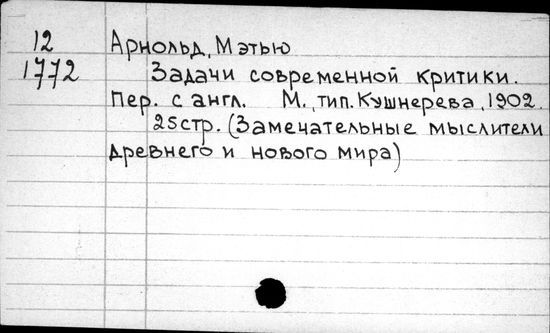 12 Арнольд, Мэтью
1772 Задачи современной критики.
Пер. с англ. М., тип. Кушнерева, 1902.
25 стр. (Замечательные мыслители
древнего и нового мира)